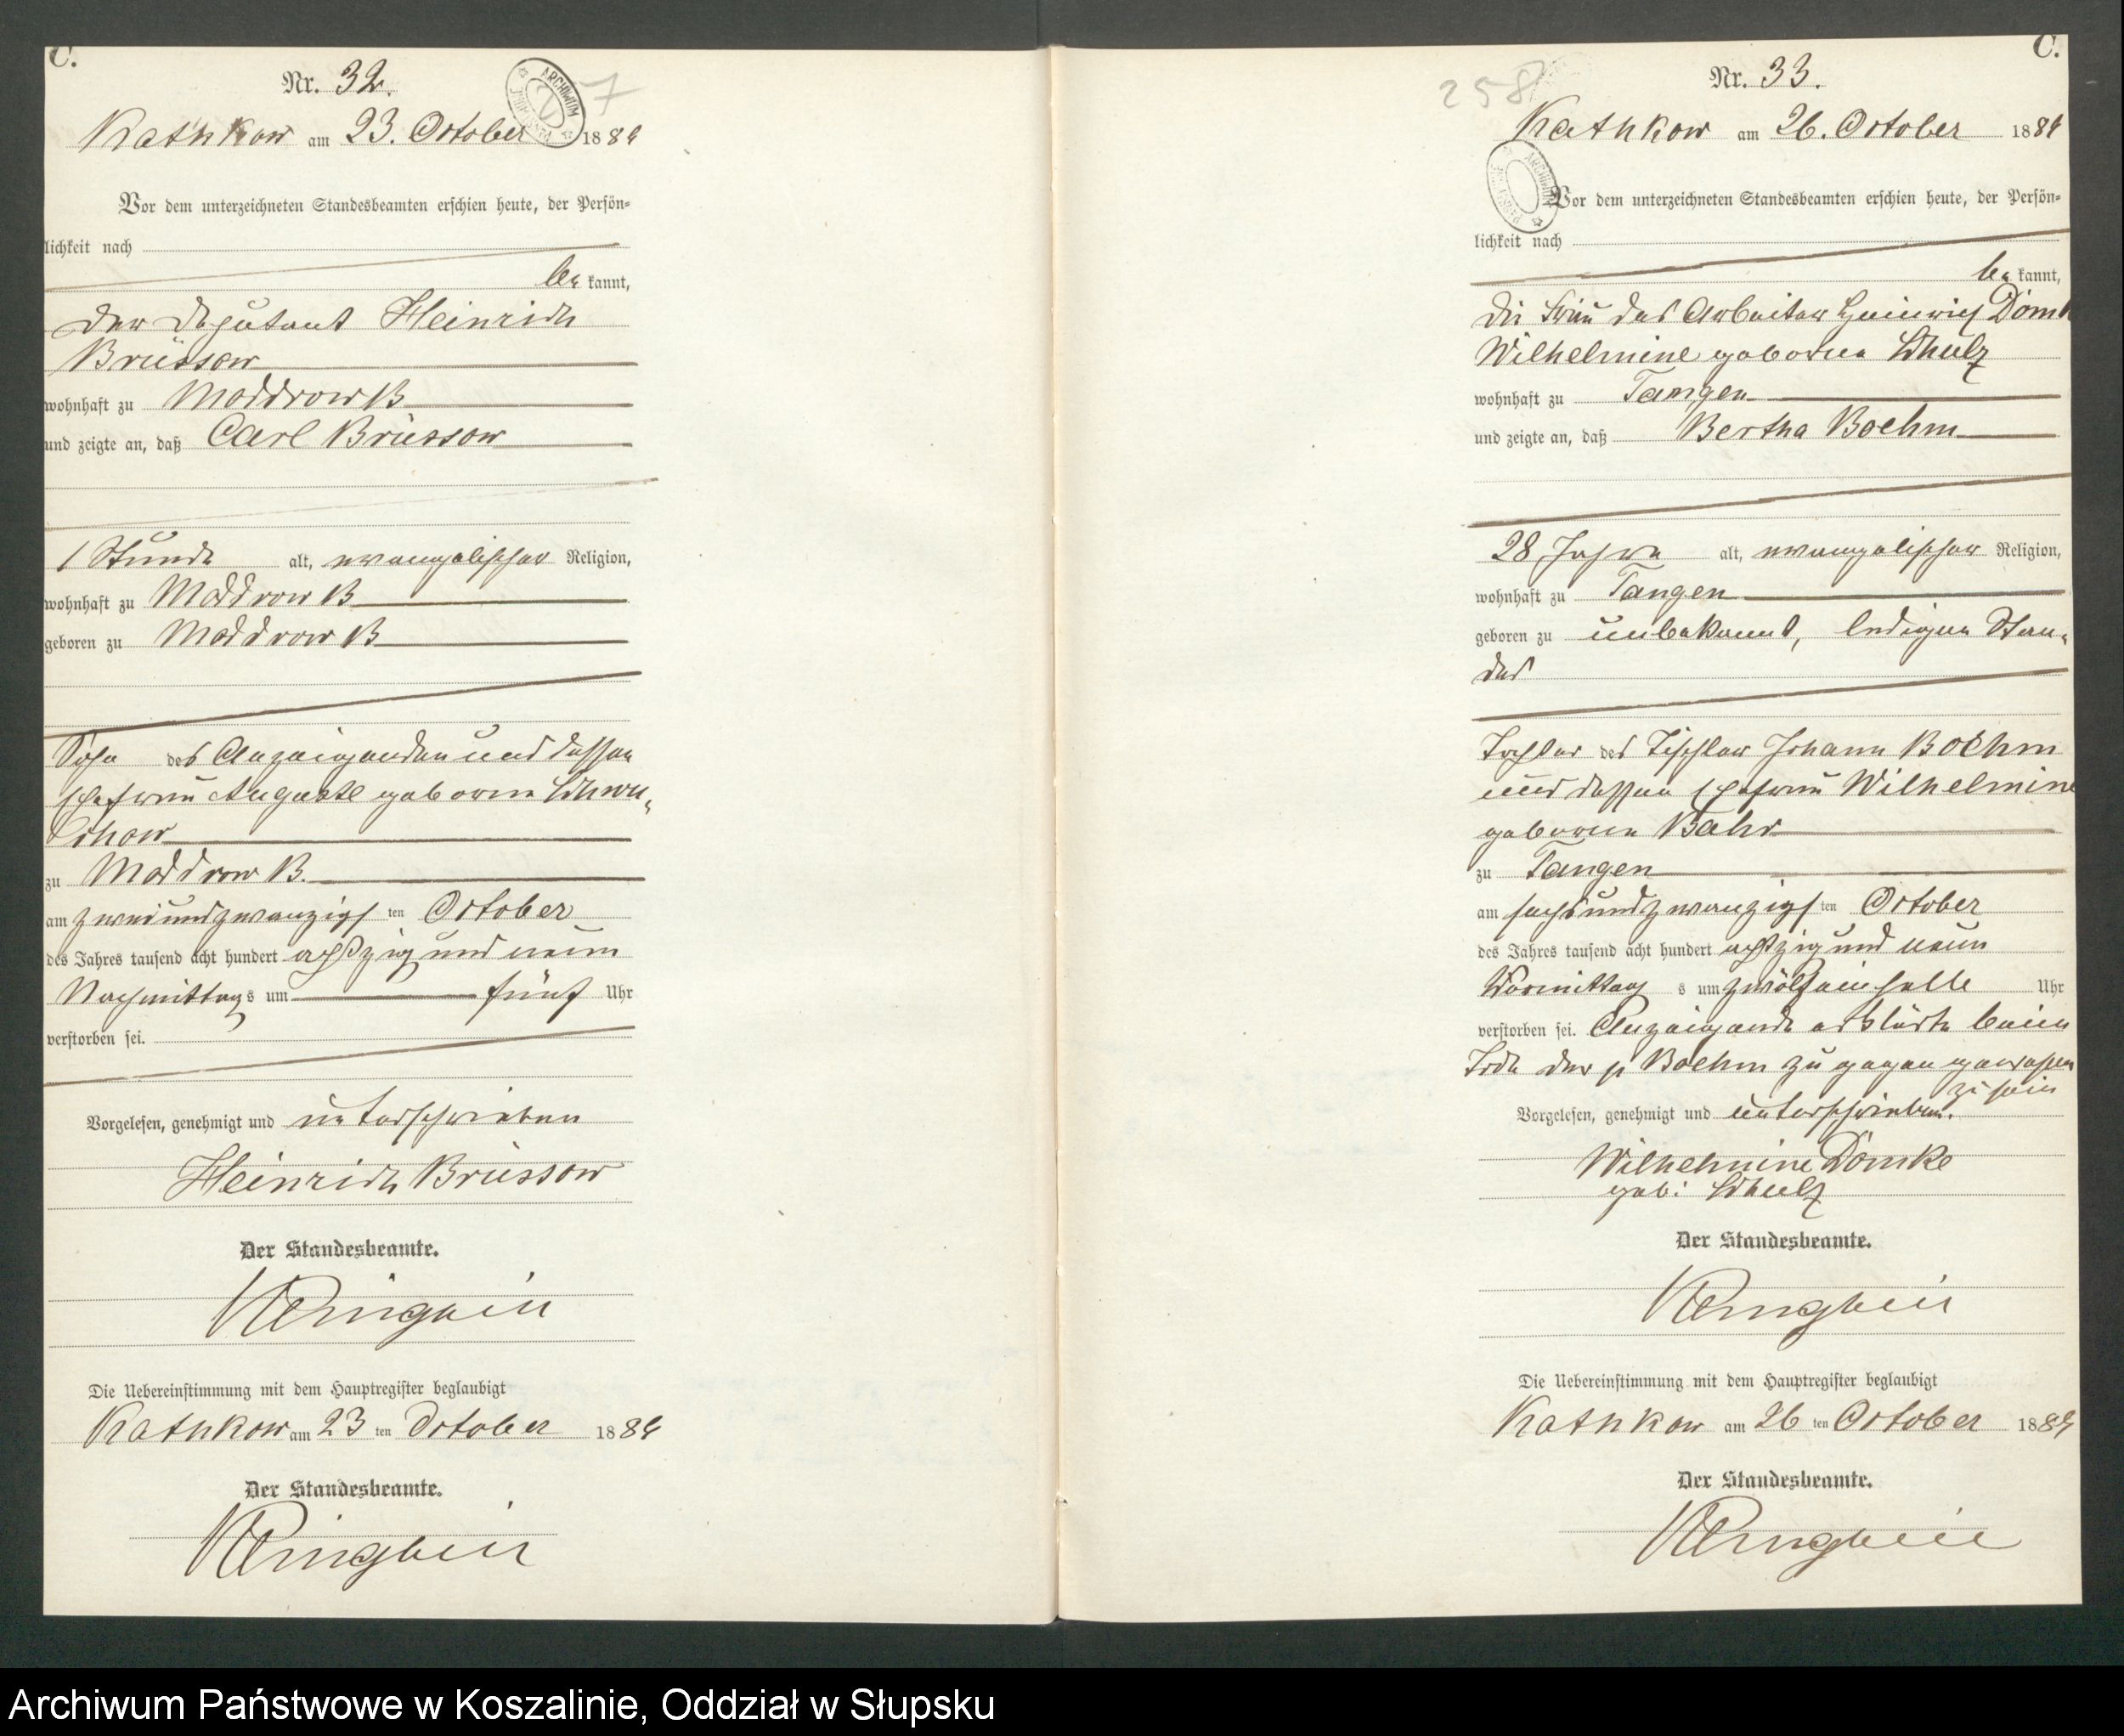 C.
Nr. 32.
Kathkow am 23. October 1889
Vor dem unterzeichneten Standesbeamten erschien heute, der Persön-
lichkeit nach
be kannt,
der Deputant Heinrich
Brüssow
wohnhaft zu Moddrow B
und zeigte an, daß Carl Brüssow
1 Stunde alt, evangelischer Religion,
wohnhaft zu Moddrow B
geboren zu Moddrow B
Sohn des Anzeigenden und dessen
Ehefrau Auguste geborene
zu Moddrow B.
am zweiundzwanzigs ten October
des Jahres tausend acht hundert achtzig und neun
Nachmittag s um fünf Uhr
verstorben sei.
Vorgelesen, genehmigt und unterschrieben
Heinrich Brüssow
Der Standesbeamte.
Die Uebereinstimmung mit dem Hauptregister beglaubigt
Kathkow am 23 ten October 1889
Der Standesbeamte.
C.
258
Nr. 33.
Kathkow am 26. October 1889
Vor dem unterzeichneten Standesbeamten erschien heute, der Persön-
lichkeit nach
be kannt,
die Frau des Arbeiter Heinrich Dömk
Wilhelmine geborene Schulz
wohnhaft zu Tangen
und zeigte an, daß Bertha Boehm
28 Jahre alt, evangelischer Religion,
wohnhaft zu Tangen
geboren zu unbekannt, ledigen Stan-
des
Tochter des Tischler Johann Boehm
und dessen Ehefrau Wilhelmine
geborene Bahr
zu Tangen
am sechsundzwanzigs ten October
des Jahres tausend acht hundert achtzig und neun
Vormittag s um zwölfeinhalb Uhr
verstorben sei. Anzeigende erklärte beim
Tode der p Boehm zugegen gewesen
zu sein
Vorgelesen, genehmigt und unterschrieben.
Wilhelmine Dömke
geb: Schulz
Der Standesbeamte.
Die Uebereinstimmung mit dem Hauptregister beglaubigt
Kathkow am 26 ten October 1889
Der Standesbeamte.
Archiwum Państwowe w Koszalinie, Oddział w Słupsku